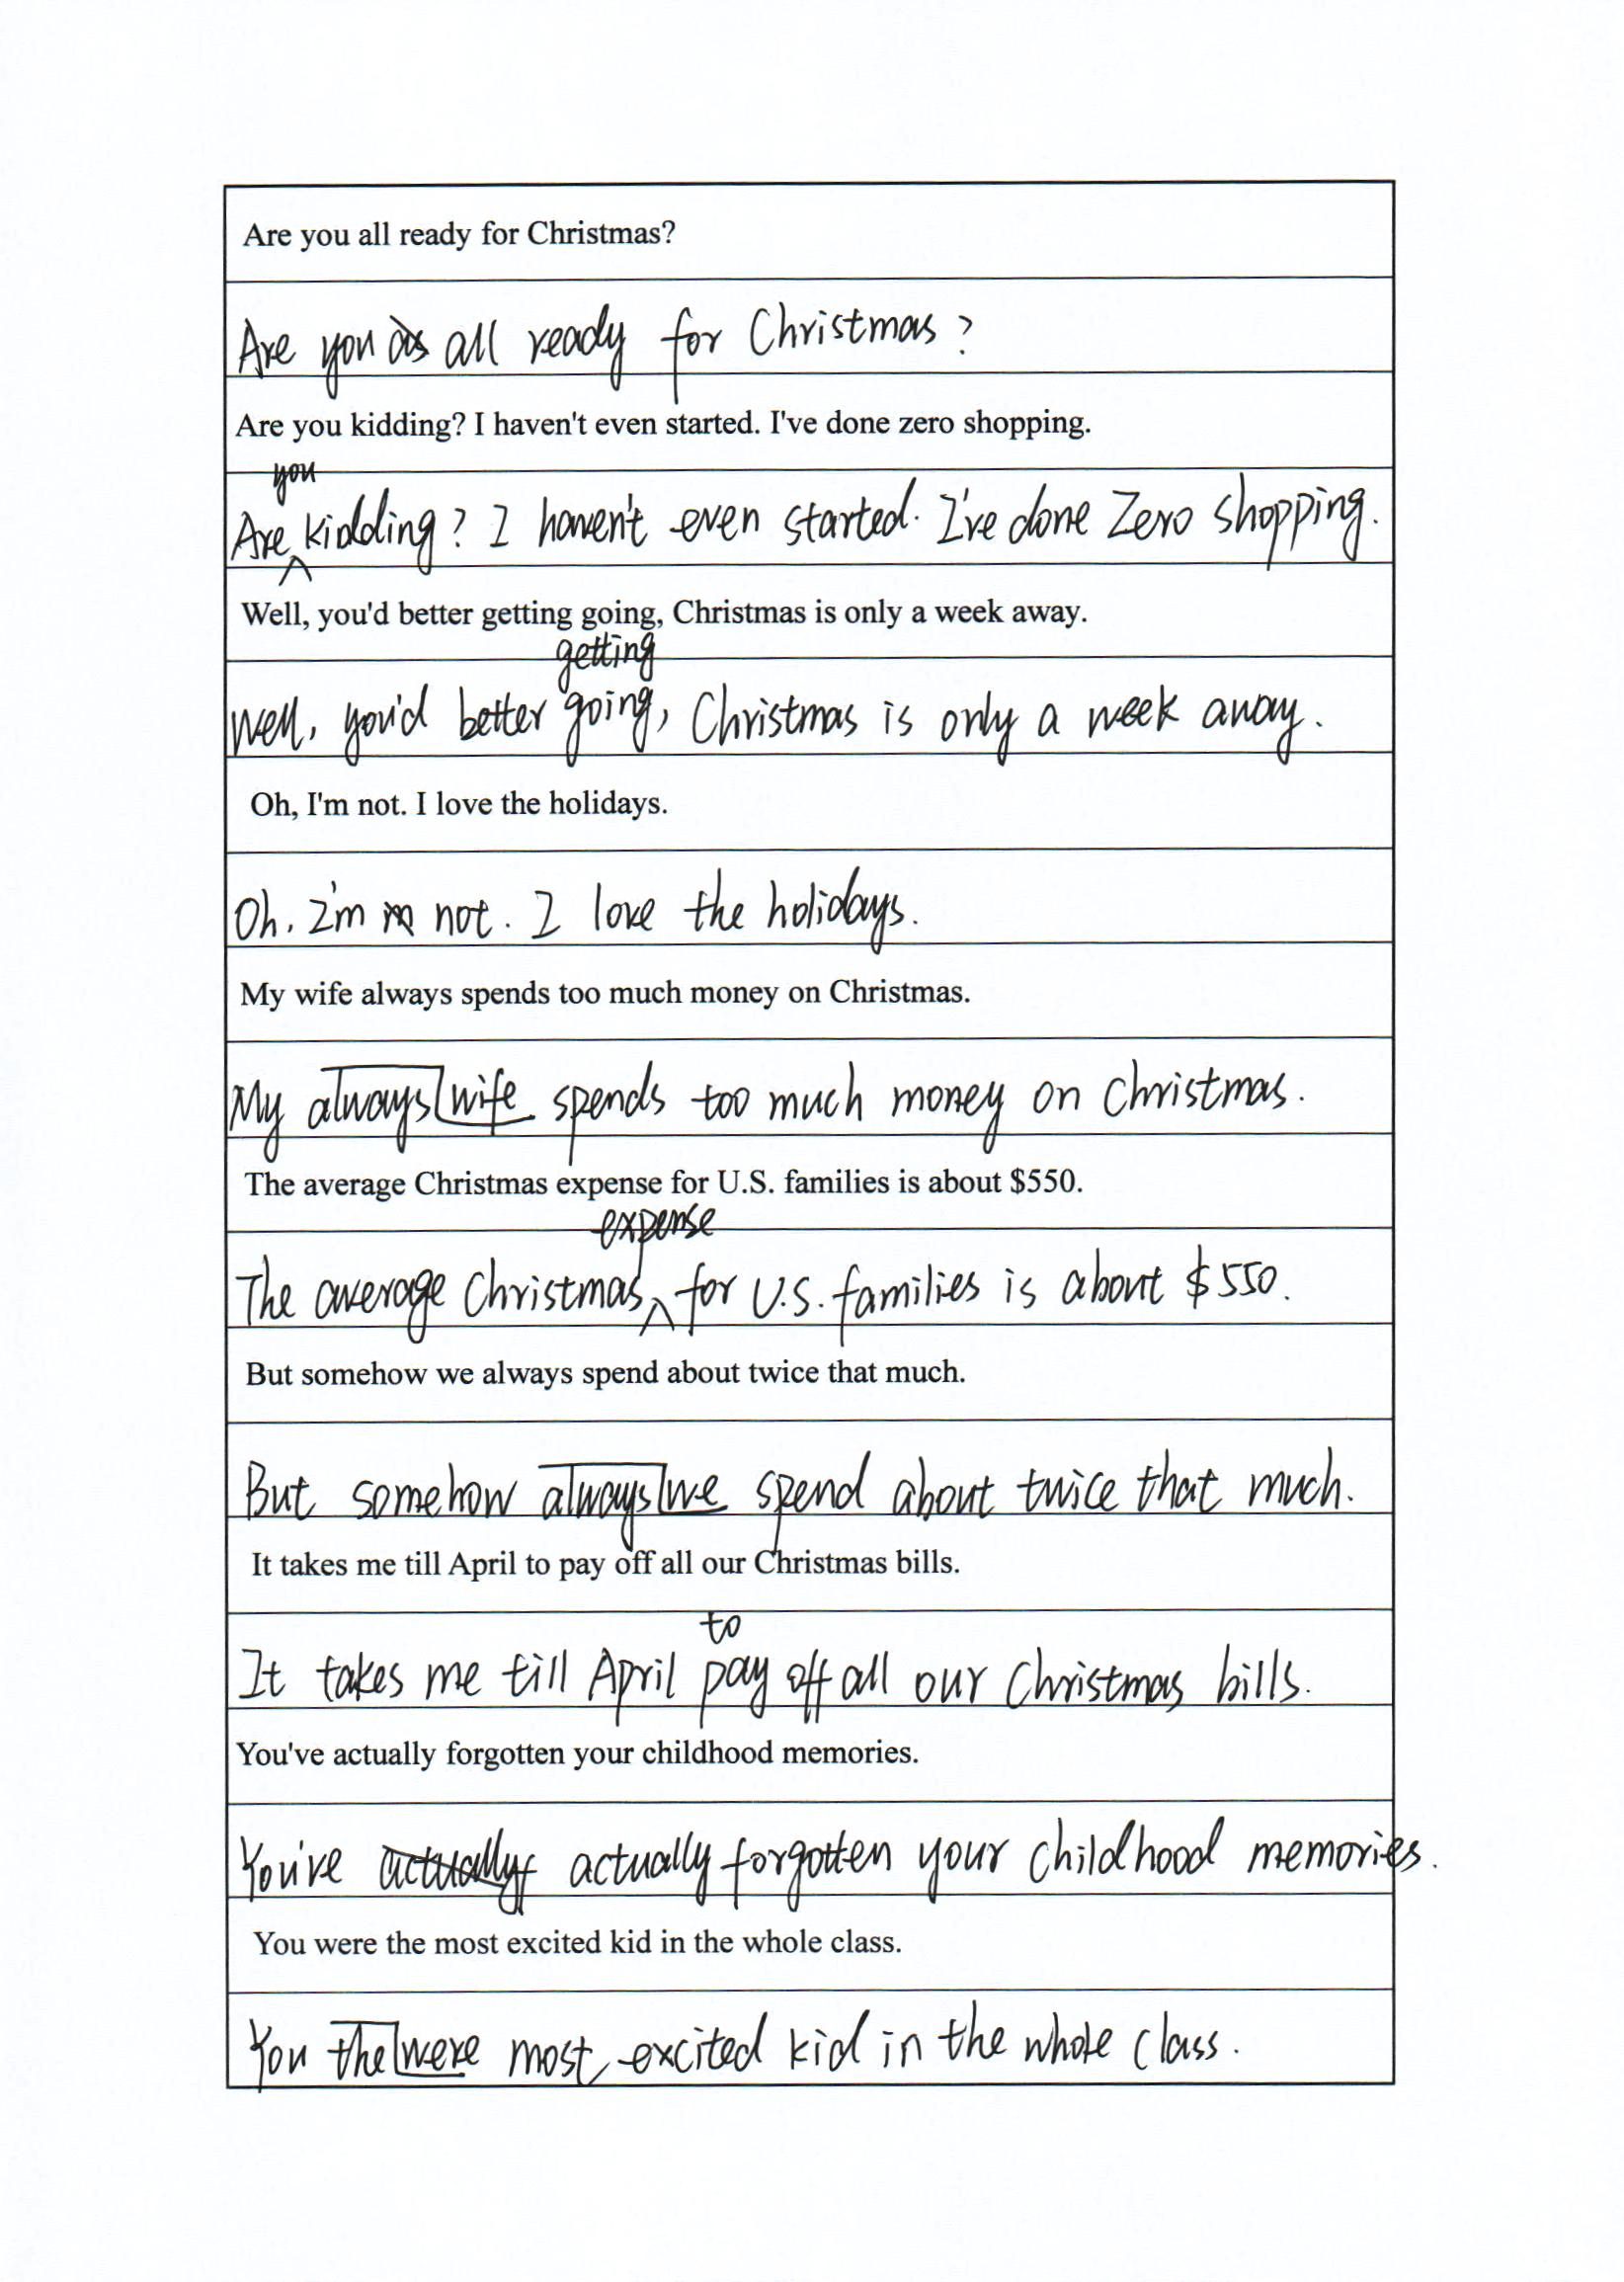 Are you all ready for Christmas?
Are you all ready for Christmas?
Are you kidding? I haven't even started. I've done zero shopping.
Are you kidding? I haven't even started. I've done Zero shopping.
Well, you'd better getting going, Christmas is only a week away.
Well, you'd better getting going, Christmas is only a week away.
Oh, I'm not. I love the holidays.
Oh, I'm not. I love the holidays.
My wife always spends too much money on Christmas.
My wife always spends too much money on Christmas.
The average Christmas expense for U.S. families is about $550.
The average Christmas expense for U.S. families is about $550.
But somehow we always spend about twice that much.
But somehow we always spend about twice that much.
It takes me till April to pay off all our Christmas bills.
It takes me till April to pay off all our Christmas bills.
You've actually forgotten your childhood memories.
You've actually forgotten your childhood memories.
You were the most excited kid in the whole class.
You were the most excited kid in the whole class.